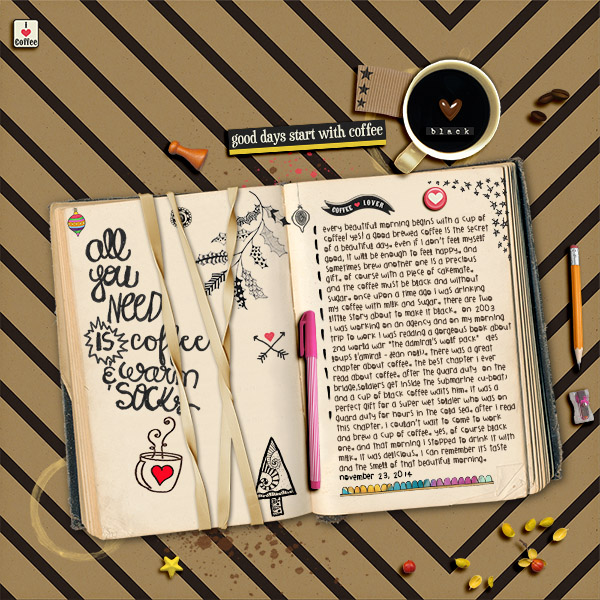 I
Coffee
black
good days start with coffee
all
you
NEED
IS coffee
& warm
SOCKS
COFFEE LOVER
every beautiful morning begins with a cup of
coffee! yes! a good brewed coffee is the secret
of a beautiful day. even if I don't feel myself
good, it will be enough to feel happy. and
sometimes brew another one is a precious
gift. of course with a piece of cakemate.
and the coffee must be black and without
sugar. once upon a time ago I was drinking
my coffee with milk and sugar. there are two
little story about to make it black. on 2003
I was working on an agency and on my morning
trip to work I was reading a gorgeous book about
2nd world war "the admiral's wolf pack" (les
loups d'amiral - jean noli). there was a great
chapter about coffee. the best chapter I ever
read about coffee. after the guard duty on the
bridge, soldiers get inside the submarine (u-boat)
and a cup of black coffee waits him. it was a
perfect gift for a super wet soldier who was on
guard duty for hours in the cold sea. after I read
this chapter, I couldn't wait to come to work
and brew a cup of coffee. yes, of course black
one. and that morning I stopped to drink it with
milk. it was delicious. I can remember it's taste
and the smell of that beautiful morning.
november 23, 2014